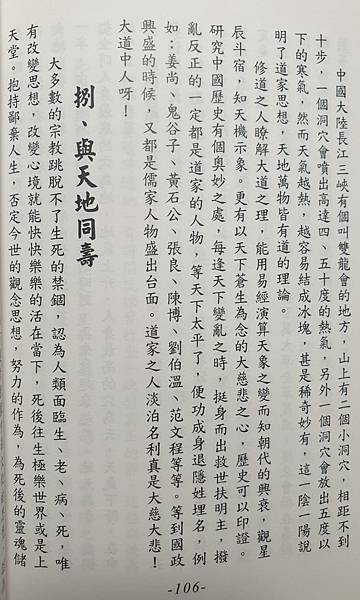 中國大陸長江三峽有個叫雙龍會的地方，山上有二個小洞穴，相距不到
十步，一個洞穴會噴出高達四、五十度的熱氣，另外一個洞穴會放出五度以
下的寒氣，然而天氣越熱，越容易結成冰塊，甚是稀奇妙有，這一陰一陽說
明了道家思想，天地萬物皆有道的理論。
修道之人瞭解大道之理，能用易經演算天象之變而知朝代的興衰，觀星
辰斗宿，知天機示象。更有以天下蒼生為念的大慈悲之心，歷史可以印證。
研究中國歷史有個奧妙之處，每逢天下變亂之時，挺身而出救世扶明主，撥
亂反正的一定都是道家的人物，等天下太平了，便功成身退隱姓埋名，例
如：姜尚、鬼谷子、黃石公、張良、陳博、劉伯溫、范文程等等。等到國政
興盛的時候，又都是儒家人物盛出台面。道家之人淡泊名利真是大慈大悲！
大道中人呀！
捌、與天地同壽
大多數的宗教跳脫不了生死的禁錮，認為人類面臨生、老、病、死，唯
有改變思想，改變心境就能快快樂樂的活在當下，死後往生極樂世界或是上
天堂。抱持鄙棄人生，否定今世的觀念思想，努力的作為，為死後的靈魂儲
-106-